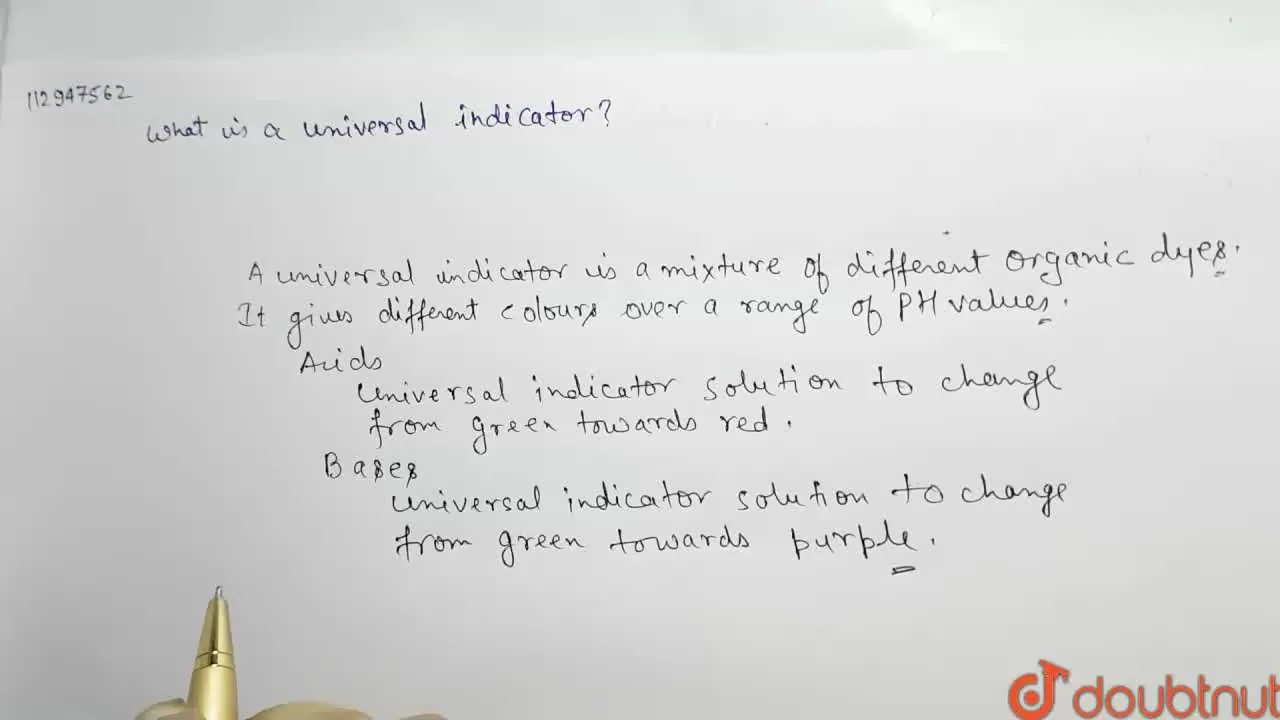 112947562
What is a universal indicator?
A universal indicator is a mixture of different organic dyes.
It gives different colours over a range of PH values.
Acids
Universal indicator solution to change
from green towards red.
Bases
Universal indicator solution to change
from green towards purple.
doubtnut